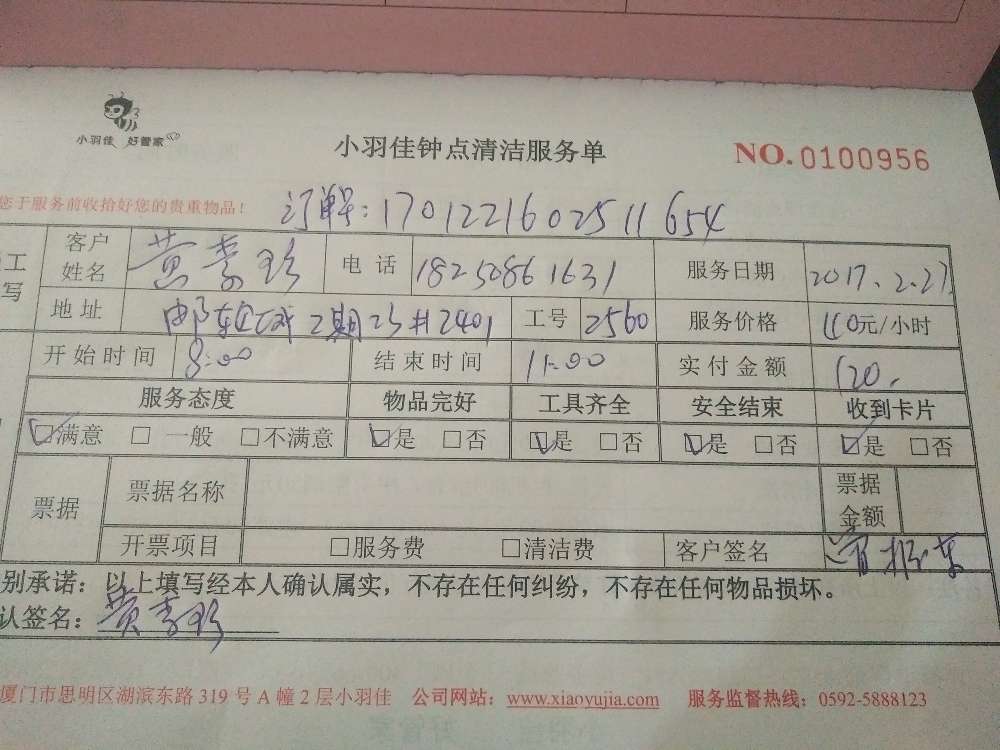 小羽佳 好管家
小羽佳钟点清洁服务单 NO.0100956
您于服务前收拾好您的贵重物品! 订单号: 1701221602511654
工写 客户姓名 黄 电话 18250861631 服务日期 2017.2.27
地址 2期 2401 工号 2560 服务价格 40元/小时
开始时间 8:00 结束时间 11:00 实付金额 120.
服务态度 物品完好 工具齐全 安全结束 收到卡片
☑满意 □一般 □不满意 ☑是 □否 ☑是 □否 ☑是 □否 ☑是 □否
票据 票据名称 票据金额
开票项目 □服务费 □清洁费 客户签名
别承诺：以上填写经本人确认属实，不存在任何纠纷，不存在任何物品损坏。
认签名： 黄
厦门市思明区湖滨东路 319 号 A 幢 2 层小羽佳 公司网站：www.xiaoyujia.com 服务监督热线：0592-5888123